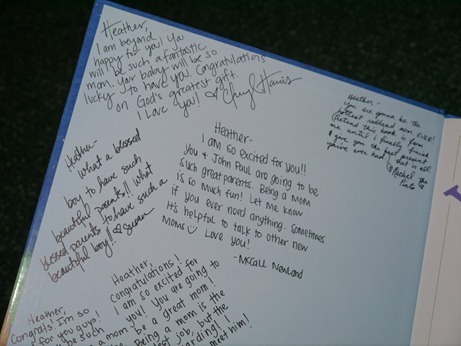 Heather,
I am beyond
happy for you! Ya
will be such a fantastic
mom. Your baby will be so
lucky to have you. Congratulations
on God's greatest gift.
I love you! ♡ Cheryl Harris
Heather-
You are gonna be the
hottest redhead mom EVER!
Pretend this book is from
me until I finally finish
& give you the present
you've ever had
Rachel
Heather
what a blessed
boy to have such
beautiful parents!! What
blessed parents to have such a
beautiful boy!! ♡ Susan
Heather-
I am so excited for you!!
You & John Paul are going to be
such great parents. Being a mom
is so much fun! Let me know
if you ever need anything. Sometimes
it's helpful to talk to other new
moms ☺ Love you!
-McCall Newland
Heather,
Congratulations!
I am so excited for
you! You are going to
be a great mom!
Being a mom is the
job, but the
meet him!
Heather,
Congrats! I'm so
for you guys!
be such
a mom